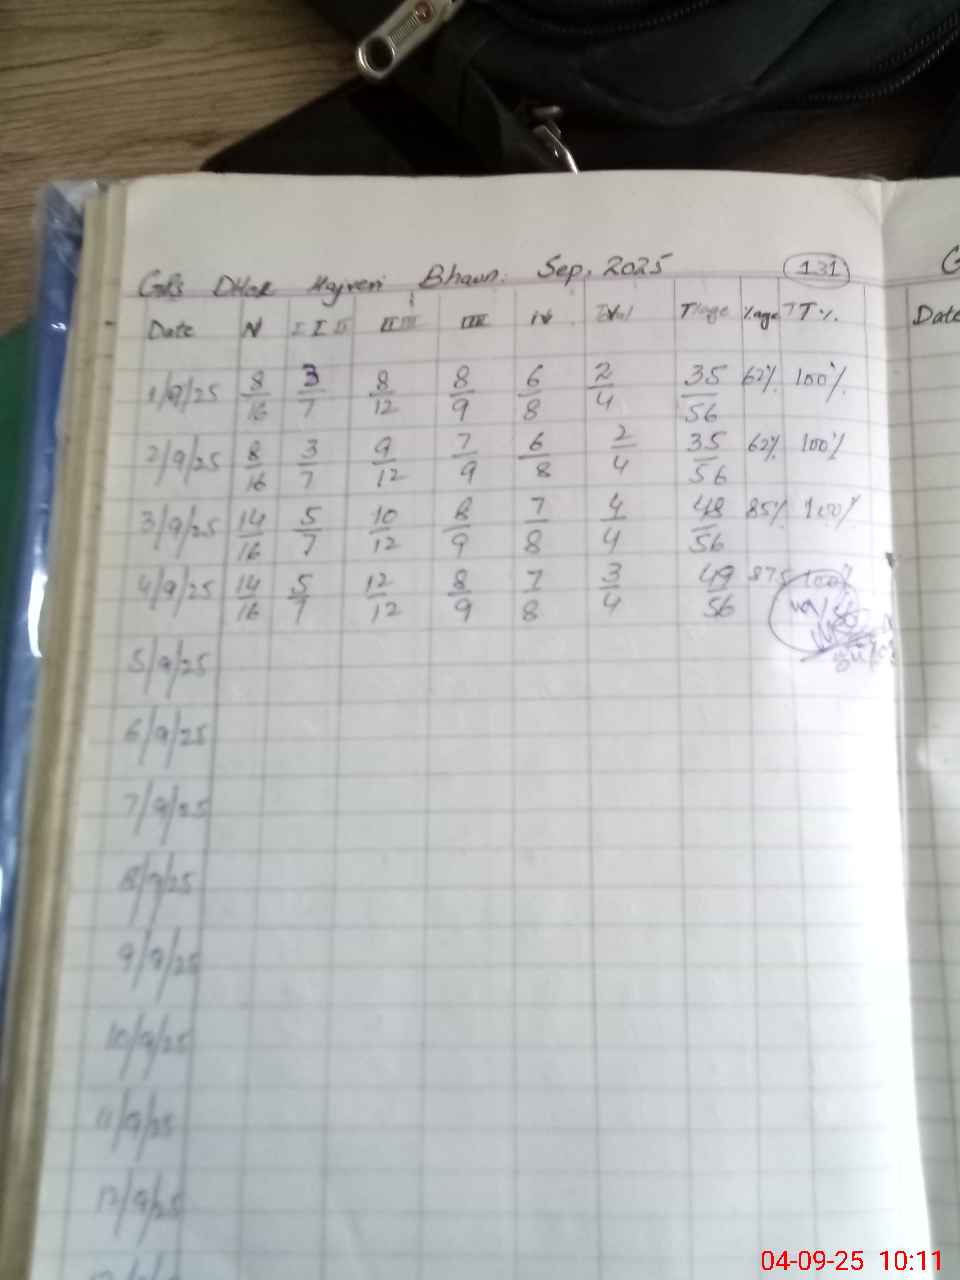 GPS Dhok Hayreri Bhawn. Sep, 2025 131
Date N I II III IV Total T/age %age TT%.
1/9/25 8/16 3/7 8/12 8/9 6/8 2/4 35/56 62% 100%
2/9/25 8/16 3/7 9/12 7/9 6/8 2/4 35/56 62% 100%
3/9/25 14/16 5/7 10/12 8/9 7/8 4/4 48/56 85% 100%
4/9/25 14/16 5/7 12/12 8/9 7/8 3/4 49/56 875 100%
5/9/25
6/9/25
7/9/25
8/9/25
9/9/25
10/9/25
11/9/25
12/9/25
Date
04-09-25 10:11